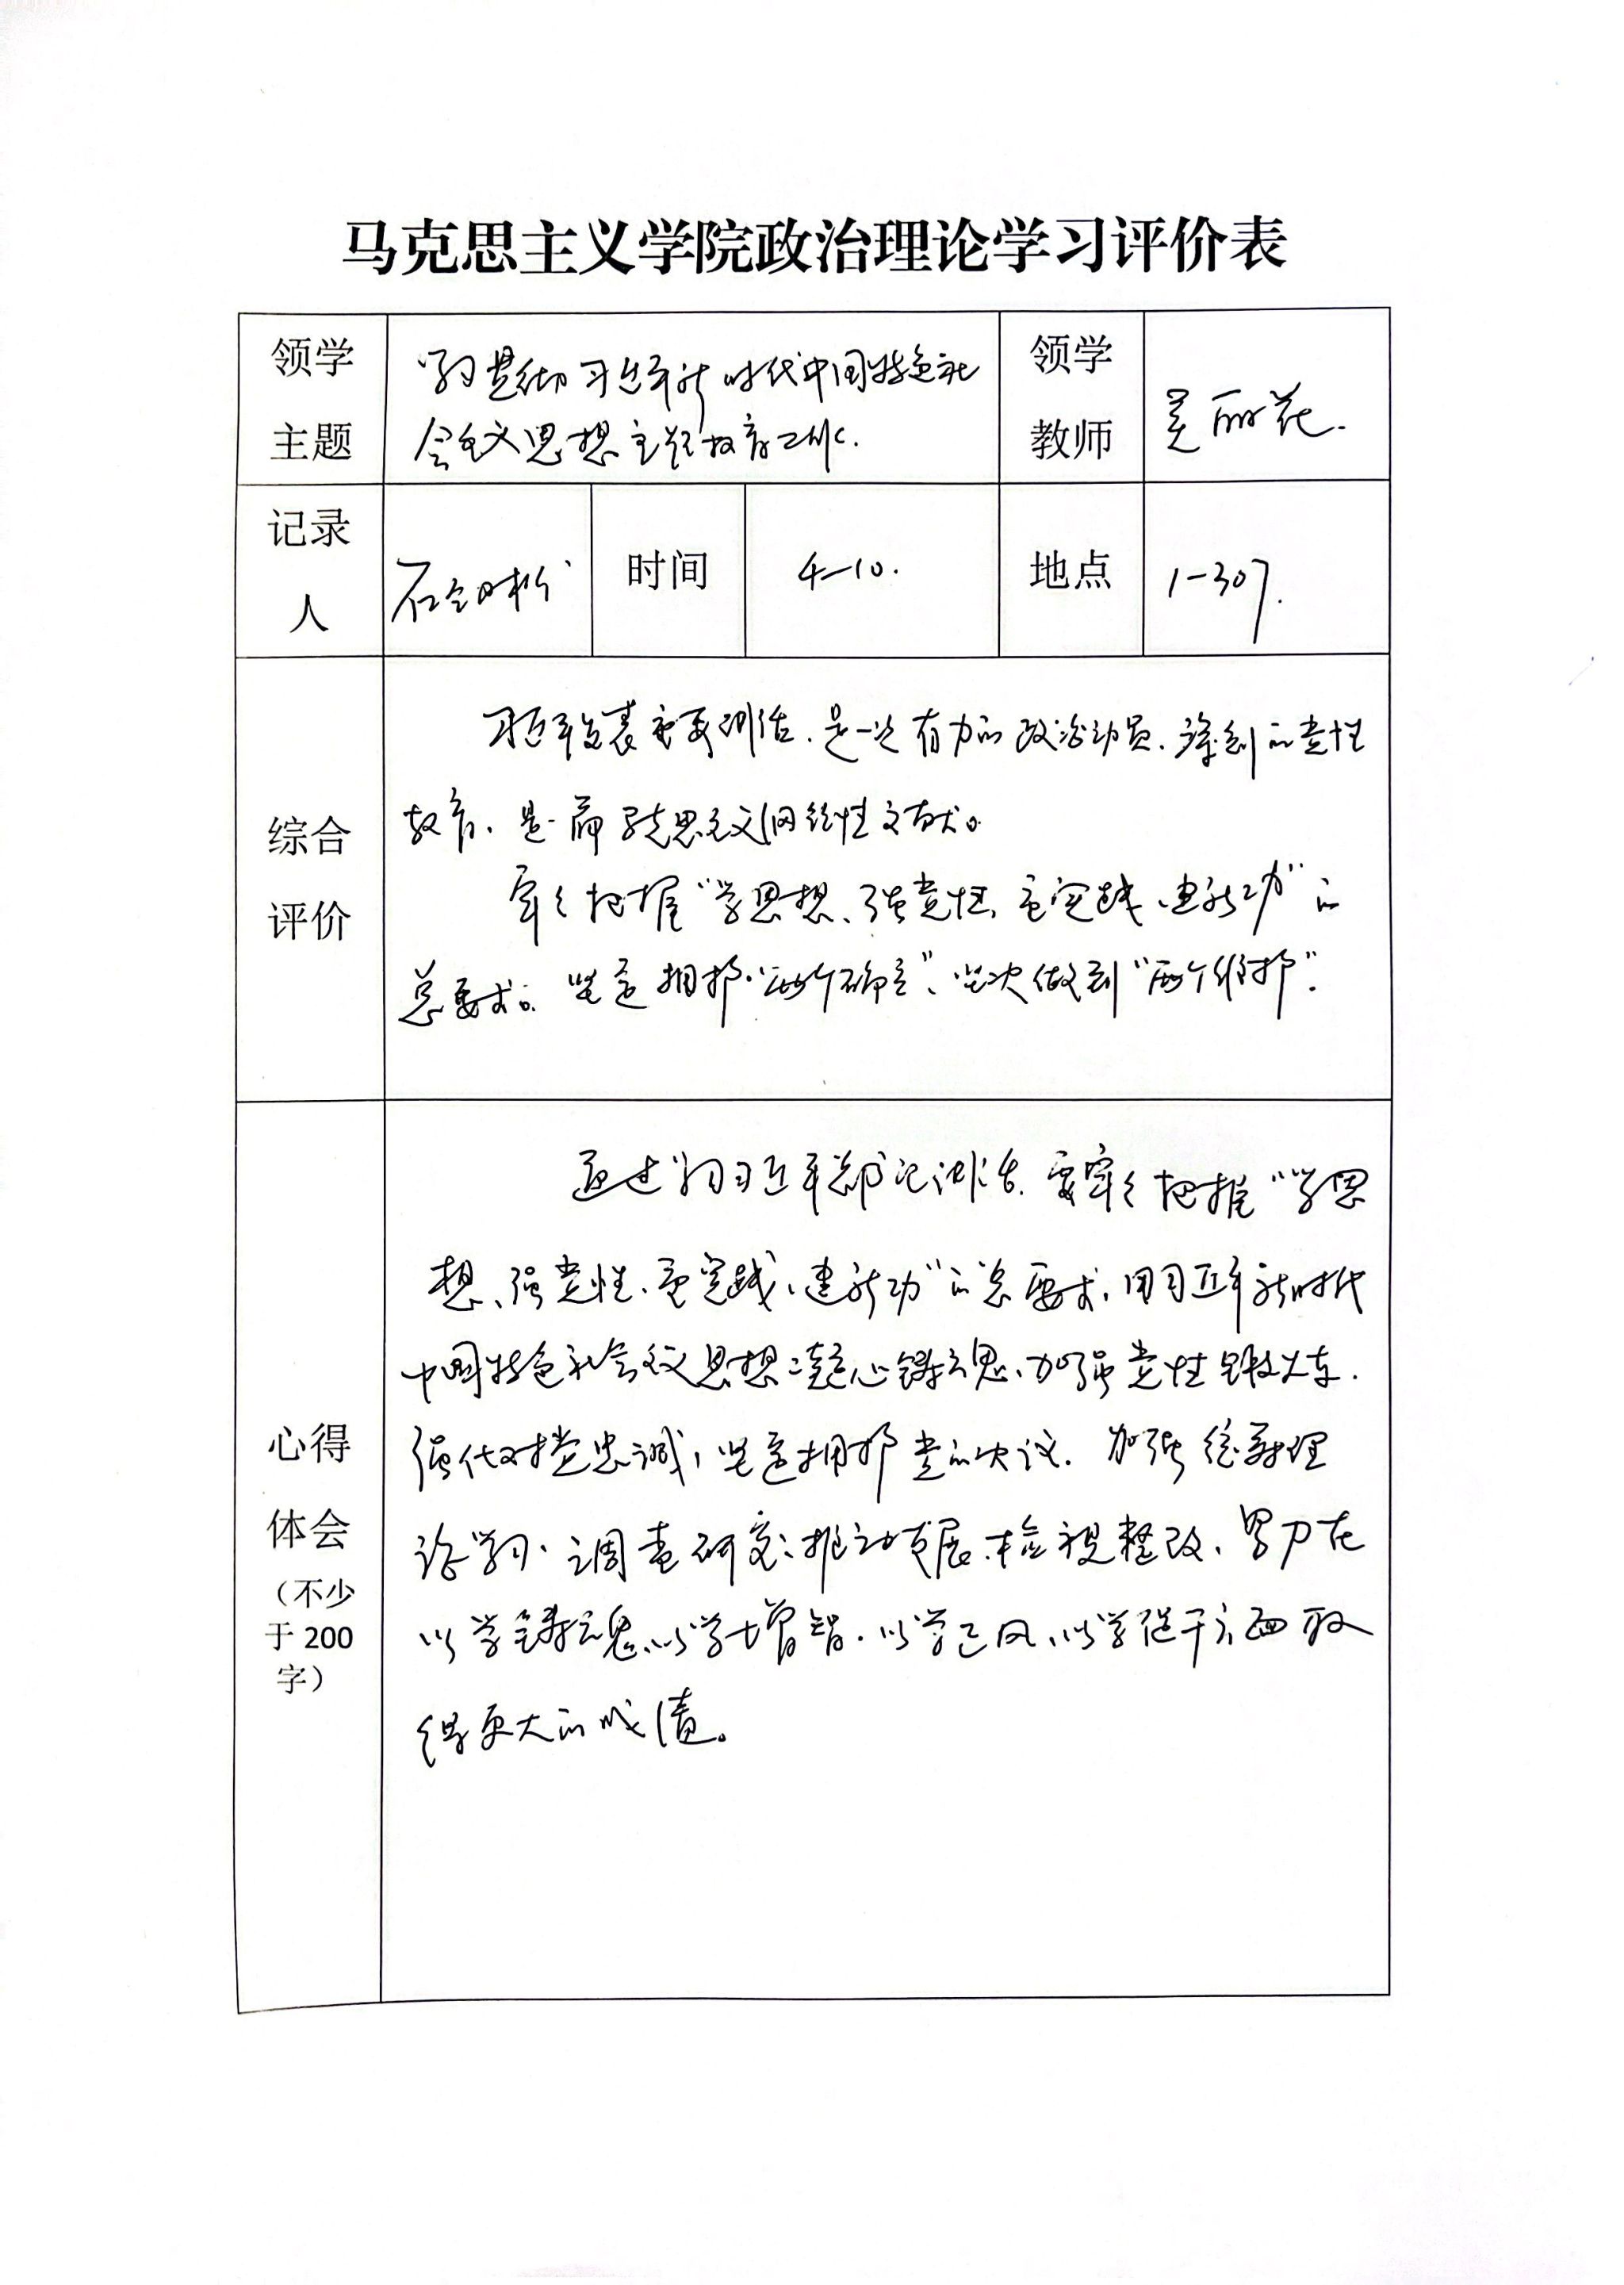 马克思主义学院政治理论学习评价表
领学主题
学习贯彻习近平新时代中国特色社
会主义思想主题教育工作.
领学教师
吴丽花.
记录人
时间
4-10.
地点
1-307.
综合评价
习近平发表重要讲话.是一次有力的政治动员.深刻的党性
教育、是一篇马克思主义纲领性文献。
牢牢把握“学思想、强党性、重实践、建新功”的
总要求。坚定拥护“两个确立”、坚决做到“两个维护”.
心得体会
(不少于200字)
通过学习习近平总书记讲话.要牢牢把握“学思
想、强党性、重实践、建新功”的总要求,用习近平新时代
中国特色社会主义思想凝心铸魂、加强党性锻炼.
强化对党忠诚,坚定拥护党的决议.加强
论学习、调查研究、推动发展、检视整改、努力在
以学铸魂、以学增智.以学正风、以学促干方面取
得更大的成绩。